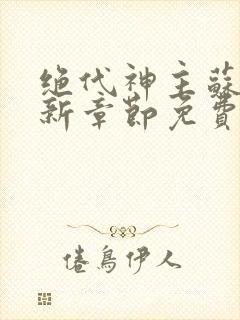 绝代神主蘇
新章節免費
倦鳥伊人